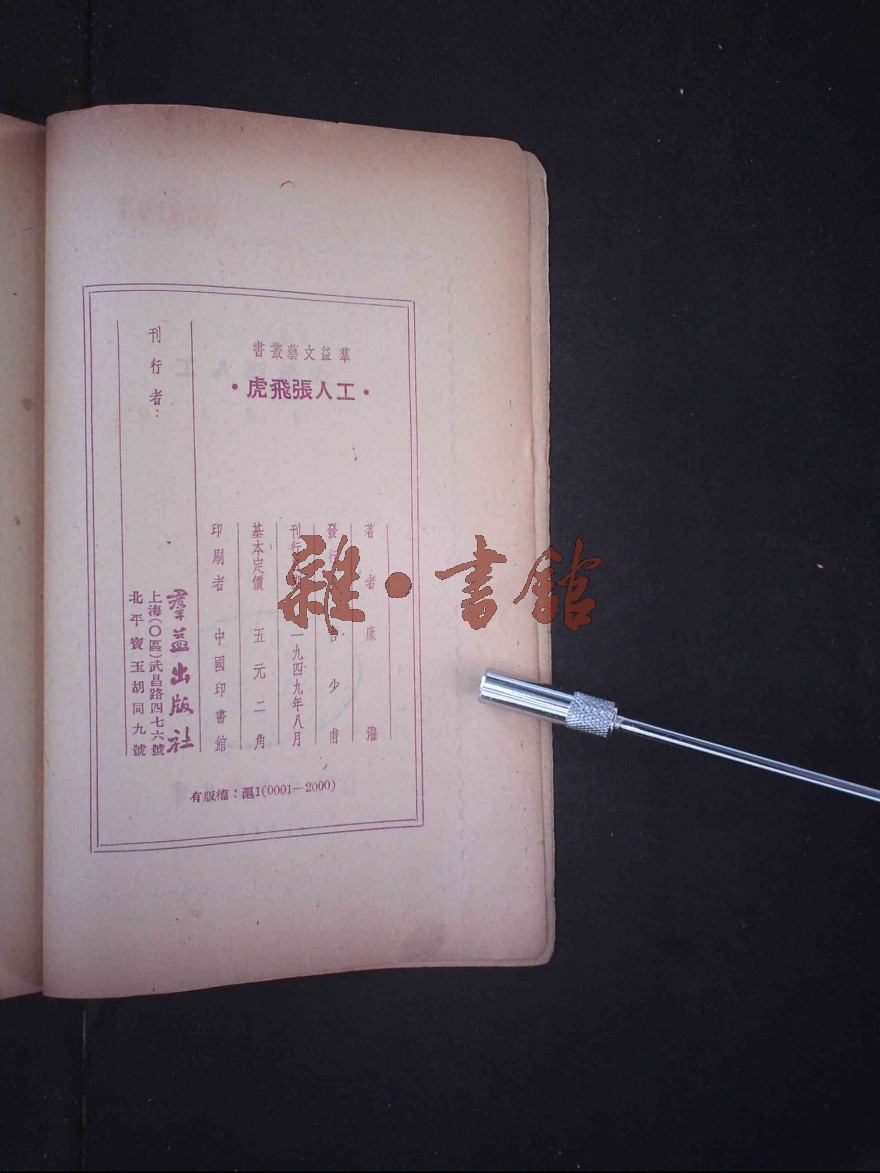 羣益文藝叢書
・工人張飛虎・
著者 康濯
發行 少甫
刊行 一九四九年八月
基本定價 五元二角
印刷者 中國印書館
刊行者：
羣益出版社
上海(〇區)武昌路四七六號
北平寶玉胡同九號
有版權：滬1(0001—2000)
雜・書館